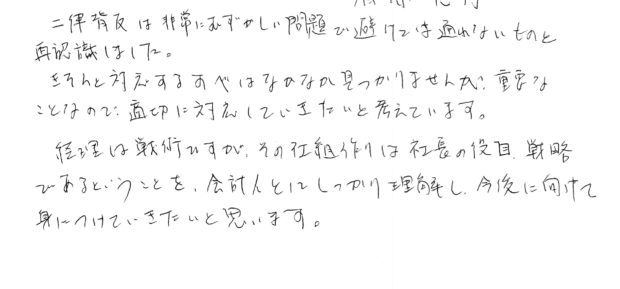 二律背反は非常にむずかしい問題で避けては通れないものと
再認識しました。
きちんと対応するすべはなかなか見つかりませんが、重要な
ことなので、適切に対応していきたいと考えています。
経理は戦術ですが、その仕組作りは社長の役目、戦略
であるということを、会計人としてしっかり理解し、今後に向けて
身につけていきたいと思います。